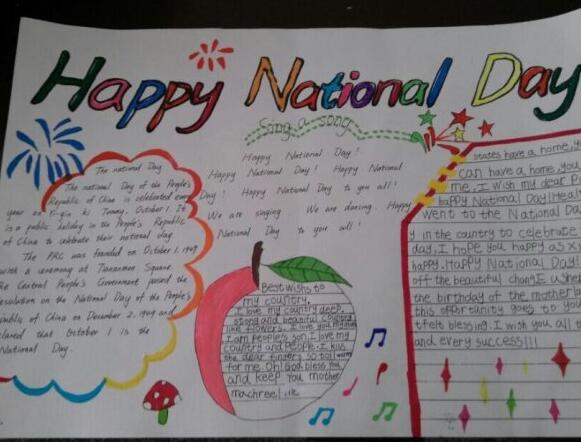 Happy National Day
Sing a song
Happy National Day!
Happy National Day! Happy National
Day! Happy National Day to you all!
We are singing We are dancing. Happy
National Day to you all!
The national Day
The national Day of the People's
Republic of China is celebrated every
year on October 1. It
is a public holiday in the People's Republic
of China to celebrate their national day.
The PRC was founded on October 1, 1949
with a ceremony at Tiananmen Square.
The Central People's Government passed the
Resolution on the National Day of the People's
Republic of China on December 2, 1949 and
clared that October 1 is the
National Day
Best wishes to
my country.
I love my country deep.
strong and beautiful country
like flowers. I love you my
I am people's son. I love my
country and People. I kiss
the dear fingers so toil
for me. Oh! God bless you
and keep you mother
machree!
states have a home, y
can have a home, you
me. I wish my dear p
happy National Day! Hea
went to the National Da
y in the country to celebrate
day, I hope you happy as x
happy. Happy National Day!
off the beautiful change ushe
the birthday of the motherl
this opportunity goes to yo
tfelt blessing. I wish you all
and every success!!!